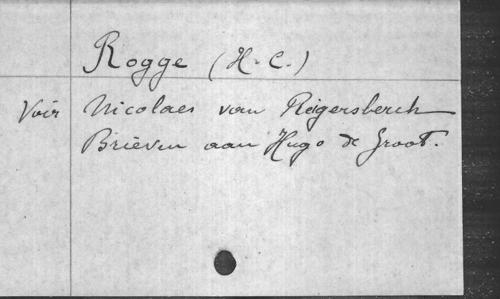 Rogge (H. C.)
Voir Nicolaes van Reigersberch
Brieven aan Hugo de Groot.